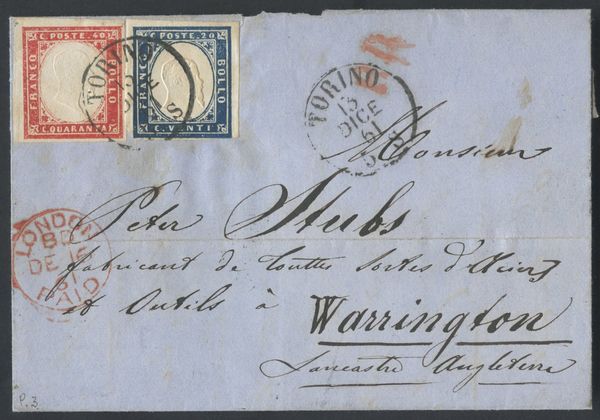 C. POSTE. 40
FRANCO
BOLLO
C. QUARANTA
C. POSTE. 20
FRANCO
BOLLO
C. VENTI
TORINO
13
DICE
S
TORINO
13
DICE
61
5 S
Monsieur
Peter Stubs
fabricant de touttes sortes d'Aciers
et Outils à Warrington
Lancastre Angleterre
LONDON
DE 16
61
PAID
P. 3